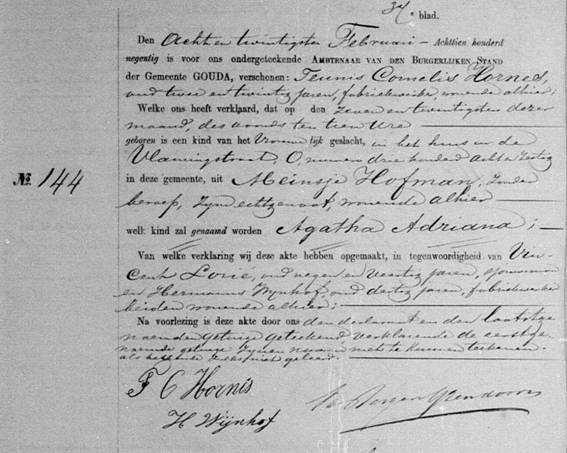 34. blad.
Den Acht en twintigsten Februari – Achttien honderd
negentig is voor ons ondergeteekende AMBTENAAR VAN DEN BURGERLIJKEN STAND
der Gemeente GOUDA, verschenen: Teunis Cornelis Hornes,
oud twee en twintig jaren, fabriekwerker, wonende alhier;
Welke ons heeft verklaard, dat op den zeven en twintigsten dezer
maand, des avonds ten tien ure
geboren is een kind van het Vrouwelijk geslacht, in het huis in de
Vlamingstraat, O, nummer drie honderd acht en
in deze gemeente, uit Meinsje Hofman, zonder
No. 144
beroep, zijne echtgenoot, wonende alhier
welk kind zal genaamd worden Agatha Adriana;
Van welke verklaring wij deze akte hebben opgemaakt, in tegenwoordigheid van Vin-
cent Lorié, oud negen en veertig jaren,
en Hermanus Wijnhof, oud dertig jaren, fabriekwerker
beiden wonende alhier;
Na voorlezing is deze akte door ons den declarant en den laatstge-
noemden getuige geteekend, verklarende de eerstge-
noemde getuige zijnen naam niet te kunnen teekenen
als hebbende geleerd.
T C Hornis
H Wijnhof